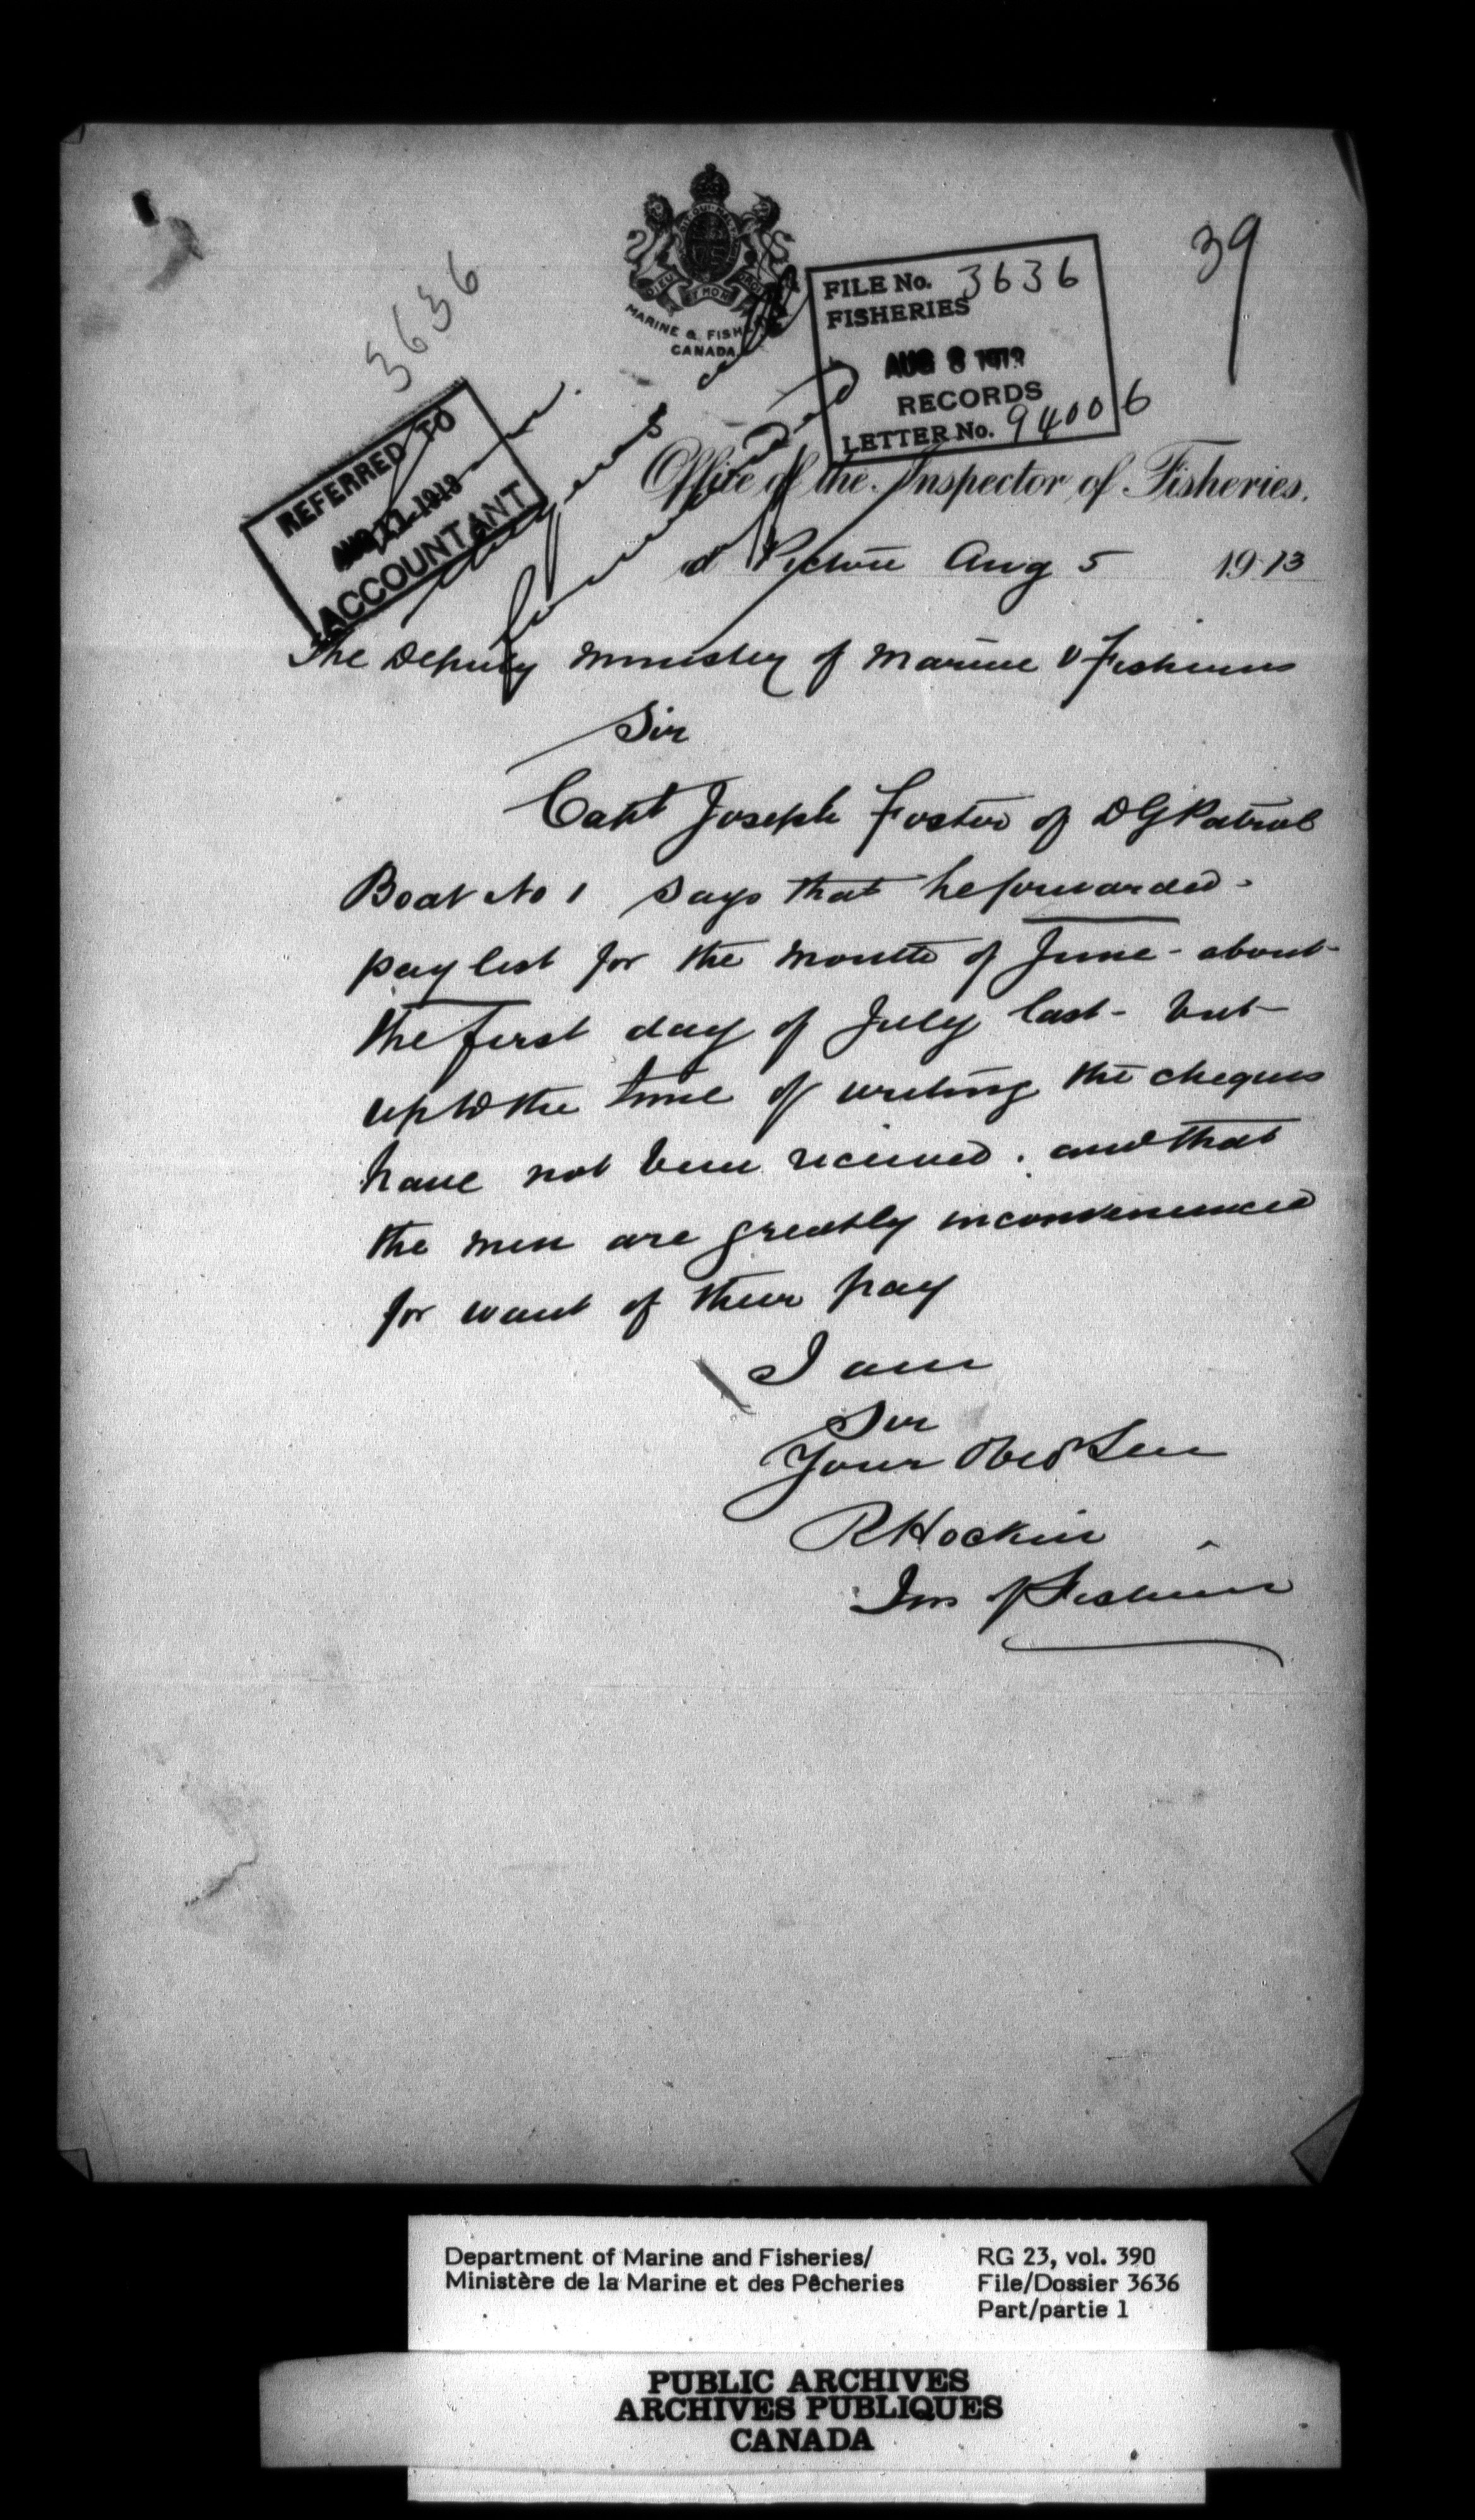 39
3636
DIEU ET MON DROIT
MARINE & FISHERIES
CANADA
FILE No. 3636
FISHERIES
AUG 8 1913
RECORDS
LETTER No. 94006
REFERRED TO
AUG 11 1913
ACCOUNTANT
cheques
forwarded
Office of the Inspector of Fisheries,
Pictou Aug 5 1913
The Deputy Minister of Marine & Fisheries
Sir
Capt Joseph Foster of DG Patrol
Boat No 1 says that he forwarded -
pay list for the month of June - about -
the first day of July last - but -
up to the time of writing the cheques
have not been received. and that
the men are greatly inconvenienced
for want of their pay
I am
Sir
Your Obed Ser
R Hockin
Ins of Fisheries
Department of Marine and Fisheries/
Ministère de la Marine et des Pêcheries
RG 23, vol. 390
File/Dossier 3636
Part/partie 1
PUBLIC ARCHIVES
ARCHIVES PUBLIQUES
CANADA